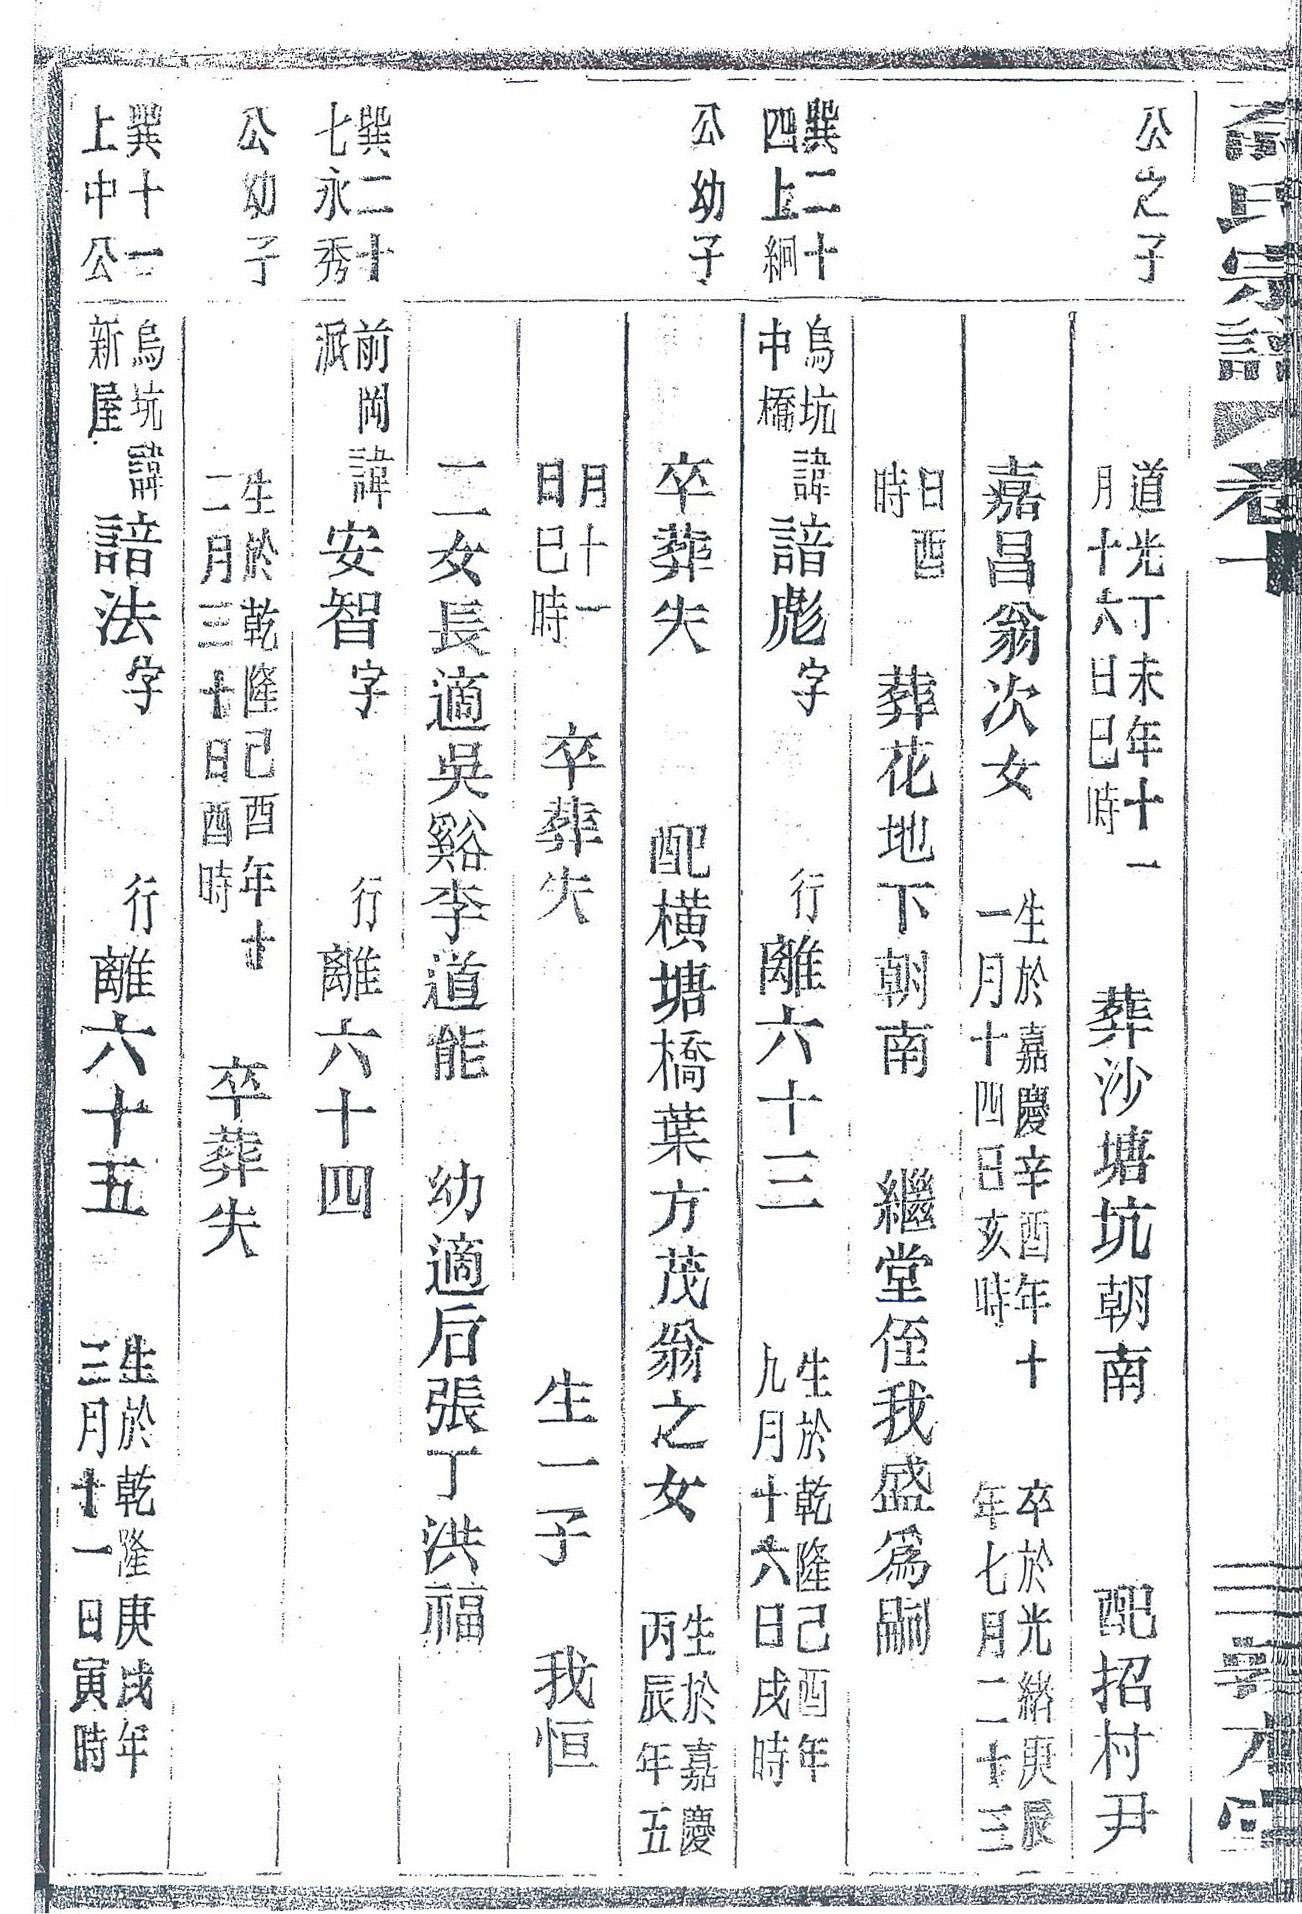 俞氏宗譜 卷十 敦本堂
公之子
道光丁未年十一
月十六日巳時
葬沙塘坑朝南 配招村尹
嘉昌翁次女
生於嘉慶辛酉年十
一月十四日亥時
卒於光緒庚辰
年七月二十三
日酉
時
葬花地下朝南 繼堂侄我盛爲嗣
巽二十
四上絅
烏坑
中橋
諱諳彪字 行離六十三
生於乾隆己酉年
九月十六日戌時
公幼子
卒葬失 配橫塘橋葉方茂翁之女
生於嘉慶
丙辰年五
月十一
日巳時
卒葬失 生一子 我恒
二女長適吳谿李道能 幼適后張丁洪福
巽二十
七永秀
前岡
派
諱安智字 行離六十四
公幼子
生於乾隆己酉年十
二月三十日酉時
卒葬失
巽十一
上中公
烏坑
新屋
諱諳法字 行離六十五
生於乾隆庚戌年
三月十一日寅時